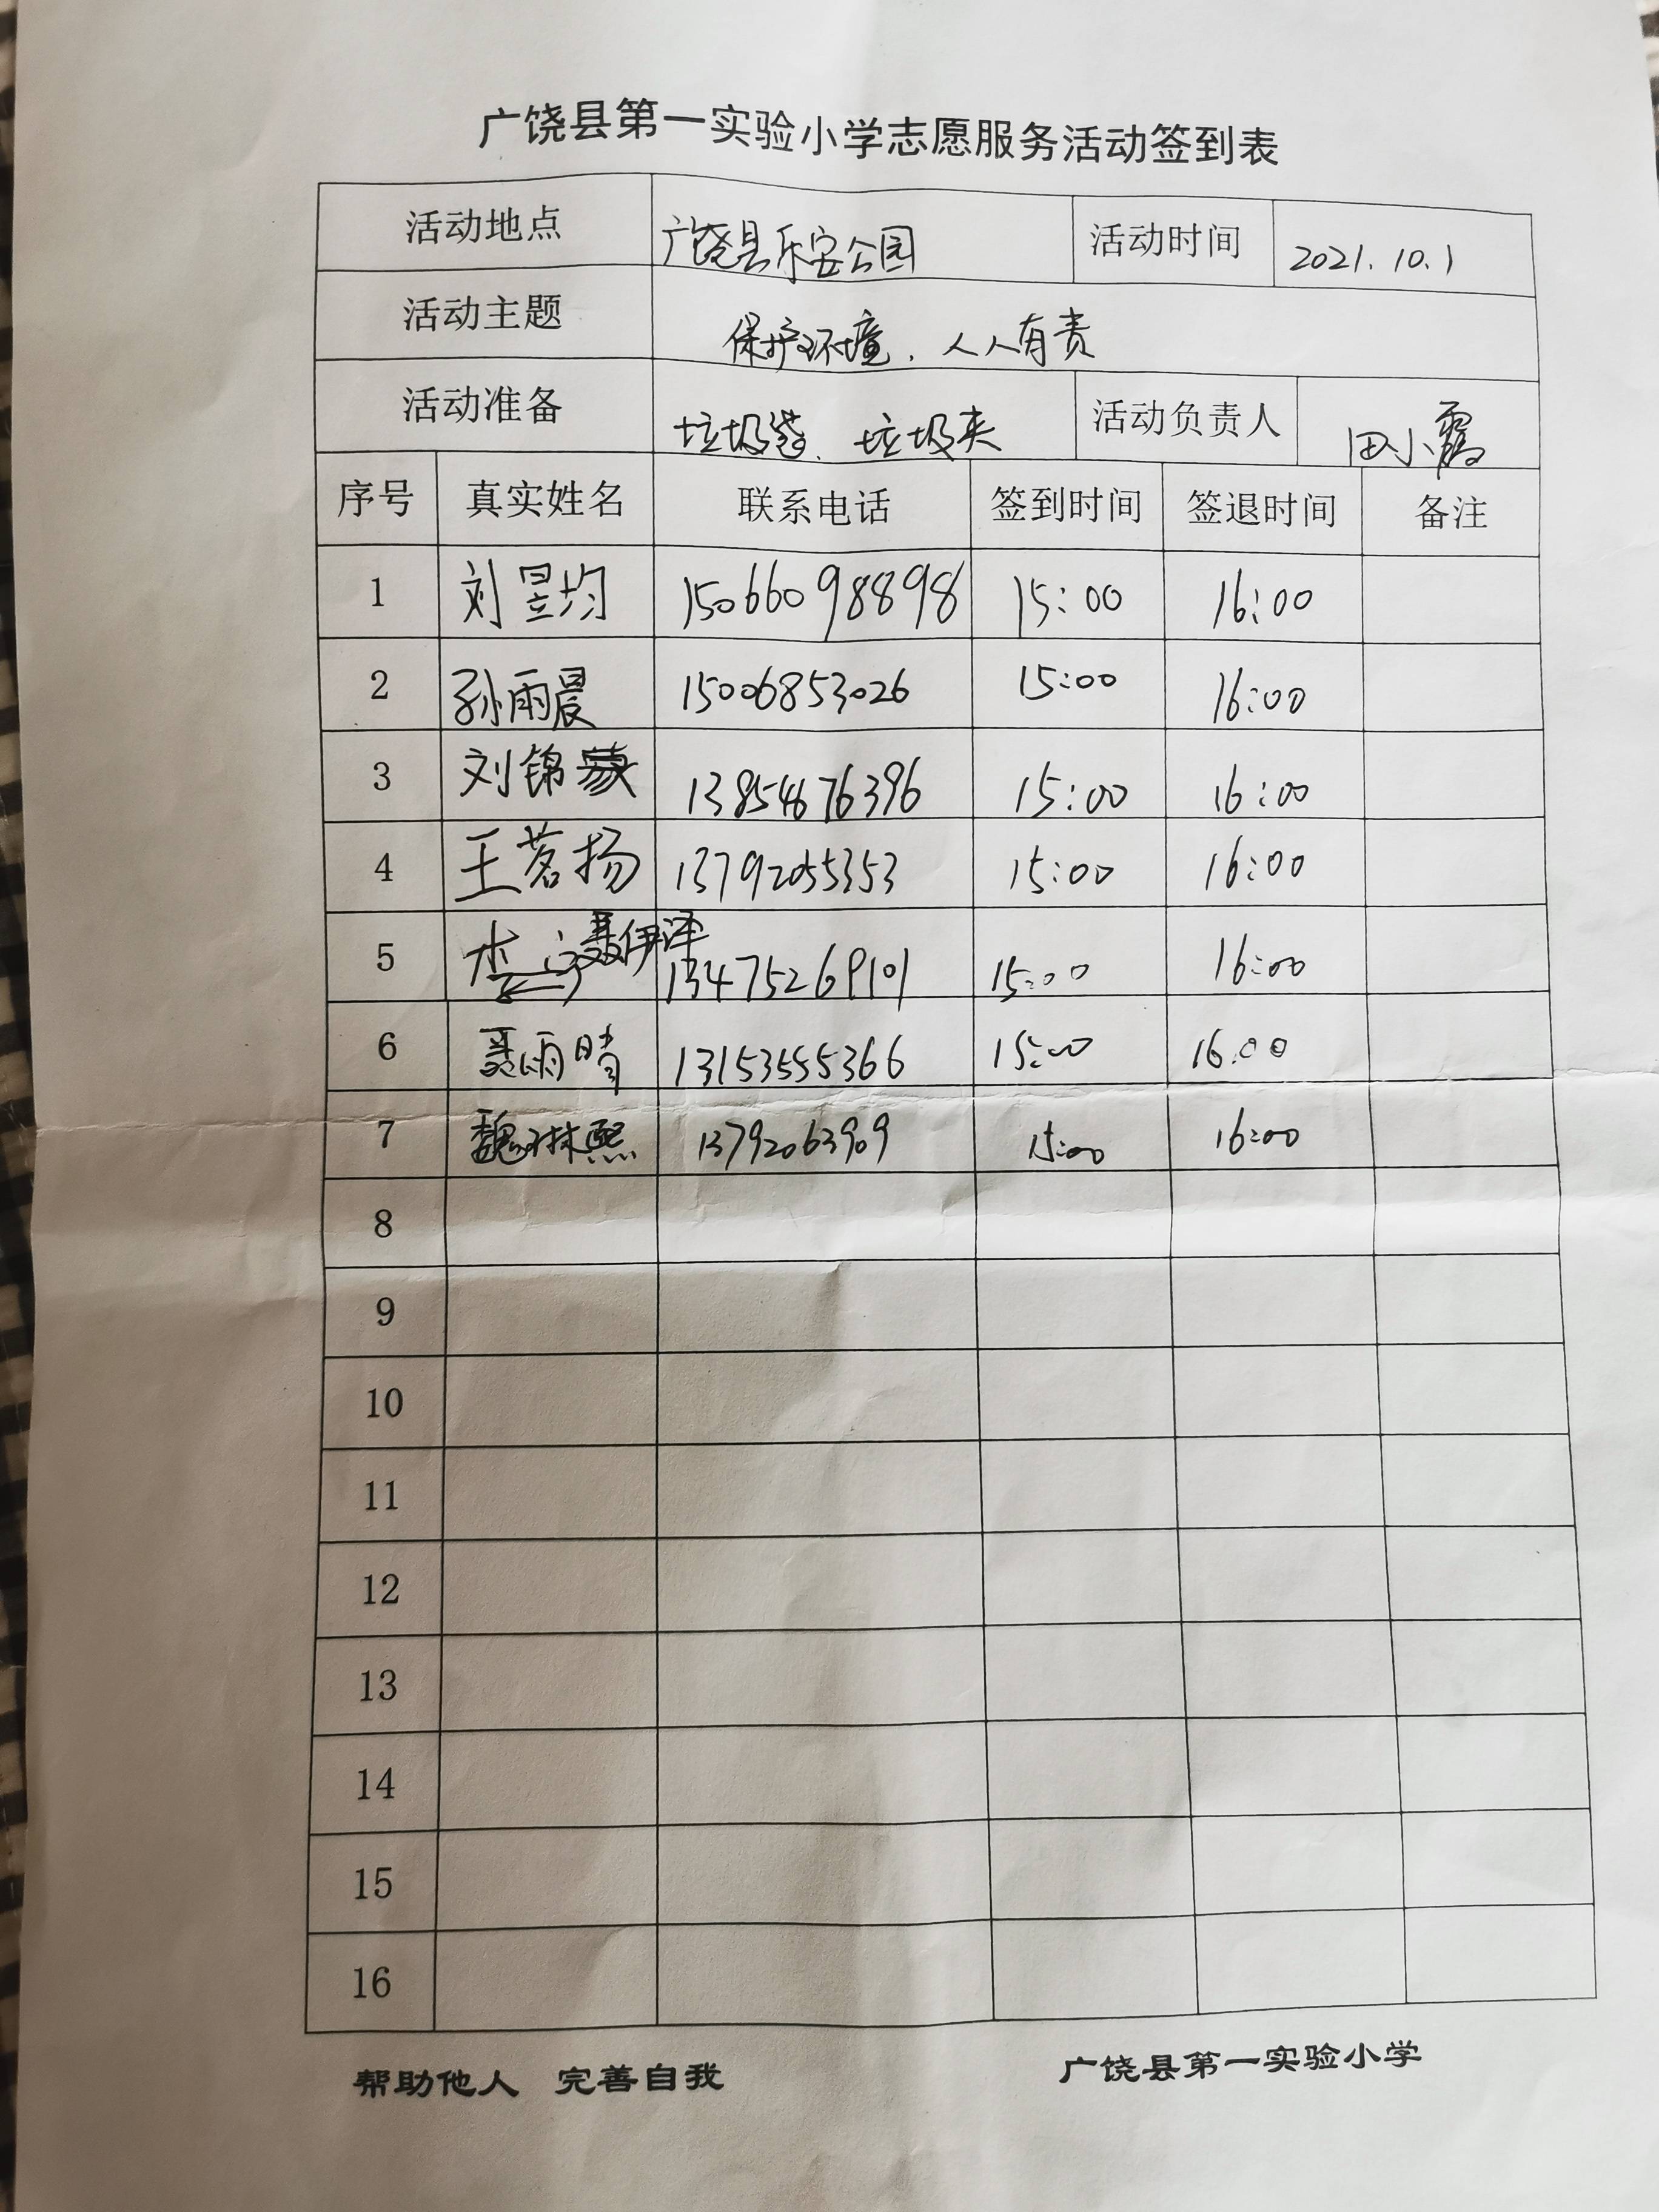 广饶县第一实验小学志愿服务活动签到表
活动地点 广饶县乐安公园 活动时间 2021.10.1
活动主题 保护环境，人人有责
活动准备 垃圾袋、垃圾夹 活动负责人 田小霞
序号 真实姓名 联系电话 签到时间 签退时间 备注
1 刘昱均 15066098898 15:00 16:00
2 孙雨晨 15006853026 15:00 16:00
3 刘锦 13854676396 15:00 16:00
4 王茗扬 13792055353 15:00 16:00
5 聂伊泽 13475269101 15:00 16:00
6 聂雨晴 13153555366 15:00 16.00
7 魏琳熙 13792063909 15:00 16:00
8
9
10
11
12
13
14
15
16
帮助他人 完善自我 广饶县第一实验小学